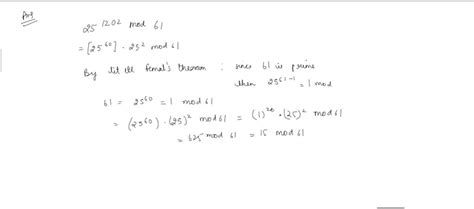 Ans
25^1202 mod 61
= [25^60] · 25^2 mod 61
By tit ill femal's theoram : since 61 is prime
then 25^61-1 = 1 mod
61 = 25^60 = 1 mod 61
= (25^60) · (25)^2 mod 61 = (1)^20 · (25)^2 mod 61
= 625 mod 61 = 15 mod 61